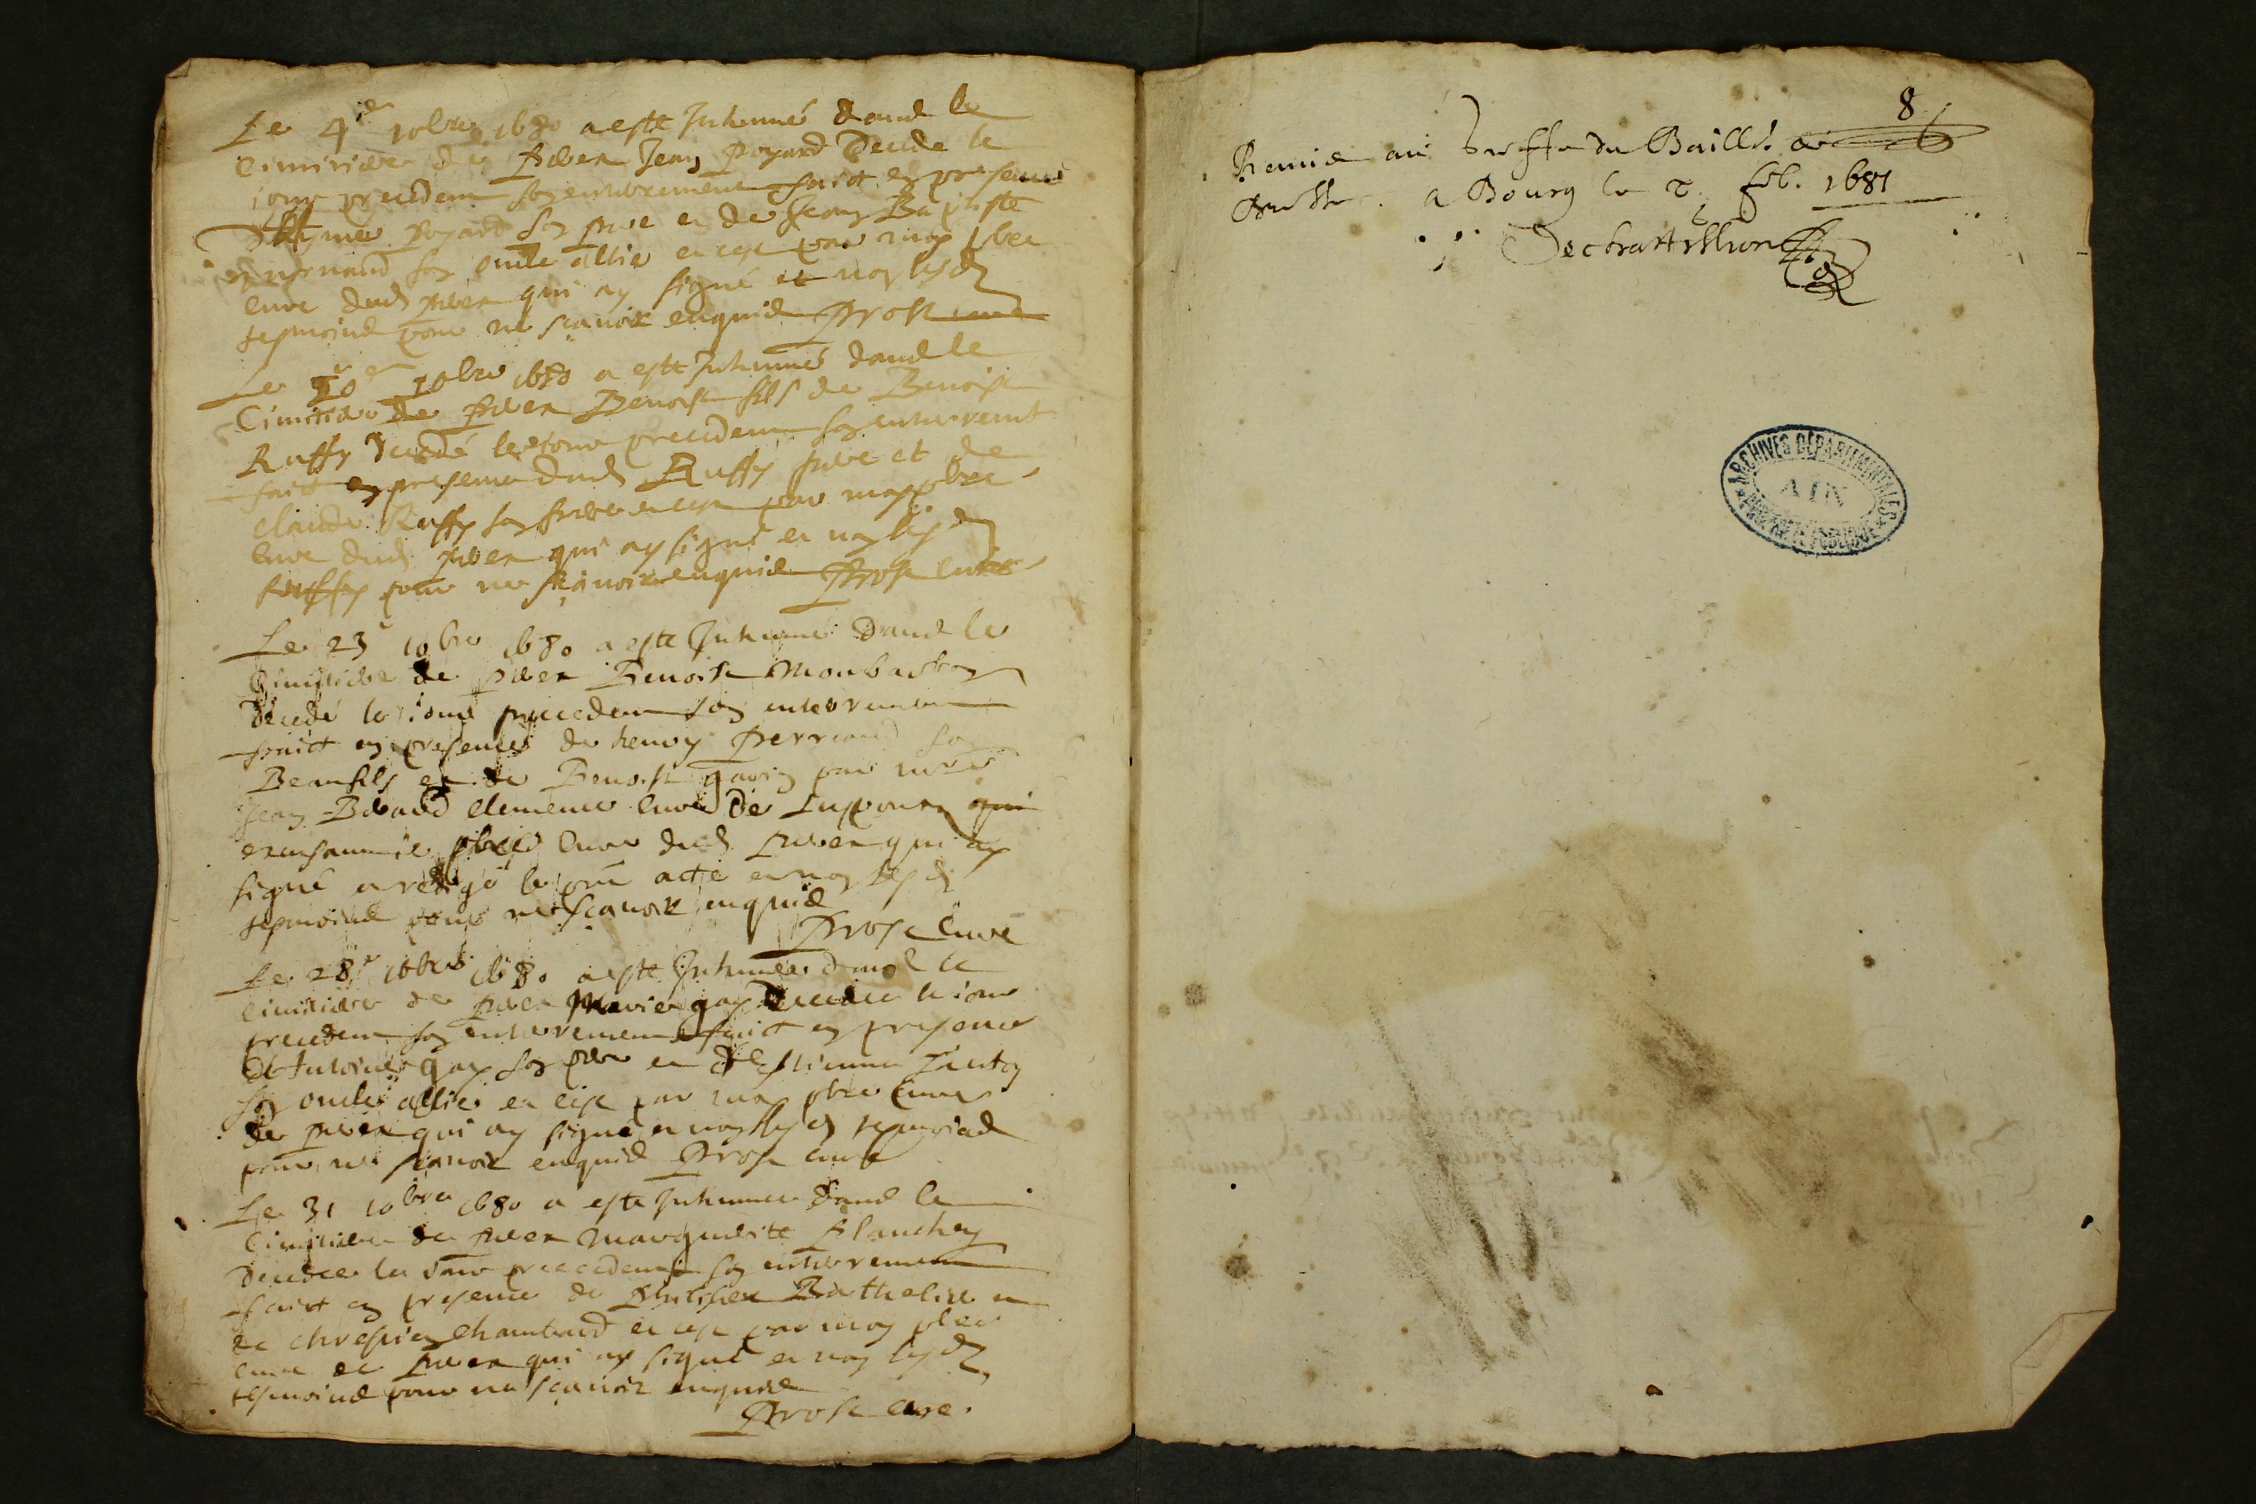 Le 4e 10bre 1680 a este Inhumé dans le
Cimitiere de priez Jean poyard Decede le
jour precedent son enterrement faict en presence
poyard son pere et de Jean Baptiste
son oncle allié et ce par moy pbre
curé dud priez qui ay signé et non lesd
tesmoins pour ne scavoir enquis Prost curé
Le 10e 10bre 1680 a este Inhumé dans le
Cimitiere de priez Benoist fils de Benoist
Ruffy decedé le jour precedent son enterremt
faict en presence dud Ruffy pere et de
claude Ruffy son frere et ce par moy pbre
curé dud priez qui ay signé et non lesd
Ruffy pour ne scavoir enquis Prost curé
Le 23e 10bre 1680 a este Inhumé dans le
Cimitiere de priez Benoist
Decedé le jour precedent son enterrement
faict en presence de henry perreaud son
Beaufils et de Benoist gavin par mre
Jean clemence curé de Lupponas qui
pbre curé dud priez qui ay
signé et redigé le pnt acte et non lesd
tesmoins pour ne scavoir enquis
Prost curé
Le 28e 10bre 1680 a este Inhumée dans le
cimitiere de priez Marie gay Decedee le jour
precedent son enterrement faict en presence
d'Antoine gay son pere et d'Estienne
son oncle allié et ce par moy pbre curé
de priez qui ay signé et non lesd tesmoins
pour ne scavoir enquis Prost curé
Le 31 10bre 1680 a este Inhumee dans le
Cimitiere de priez Marguerite Planchon
Decedee le jour precedent son enterrement
faict en presence de Philibert Barthelire et
de chrespin Chambard et ce par moy pbre
curé de priez qui ay signé et non lesd
tesmoins pour ne scavoir enquis
Prost curé.
8
Remis au Greffe du Baille. de
Bresse a Bourg le feb. 1681
ARCHIVES DÉPARTEMENTALES
AIN